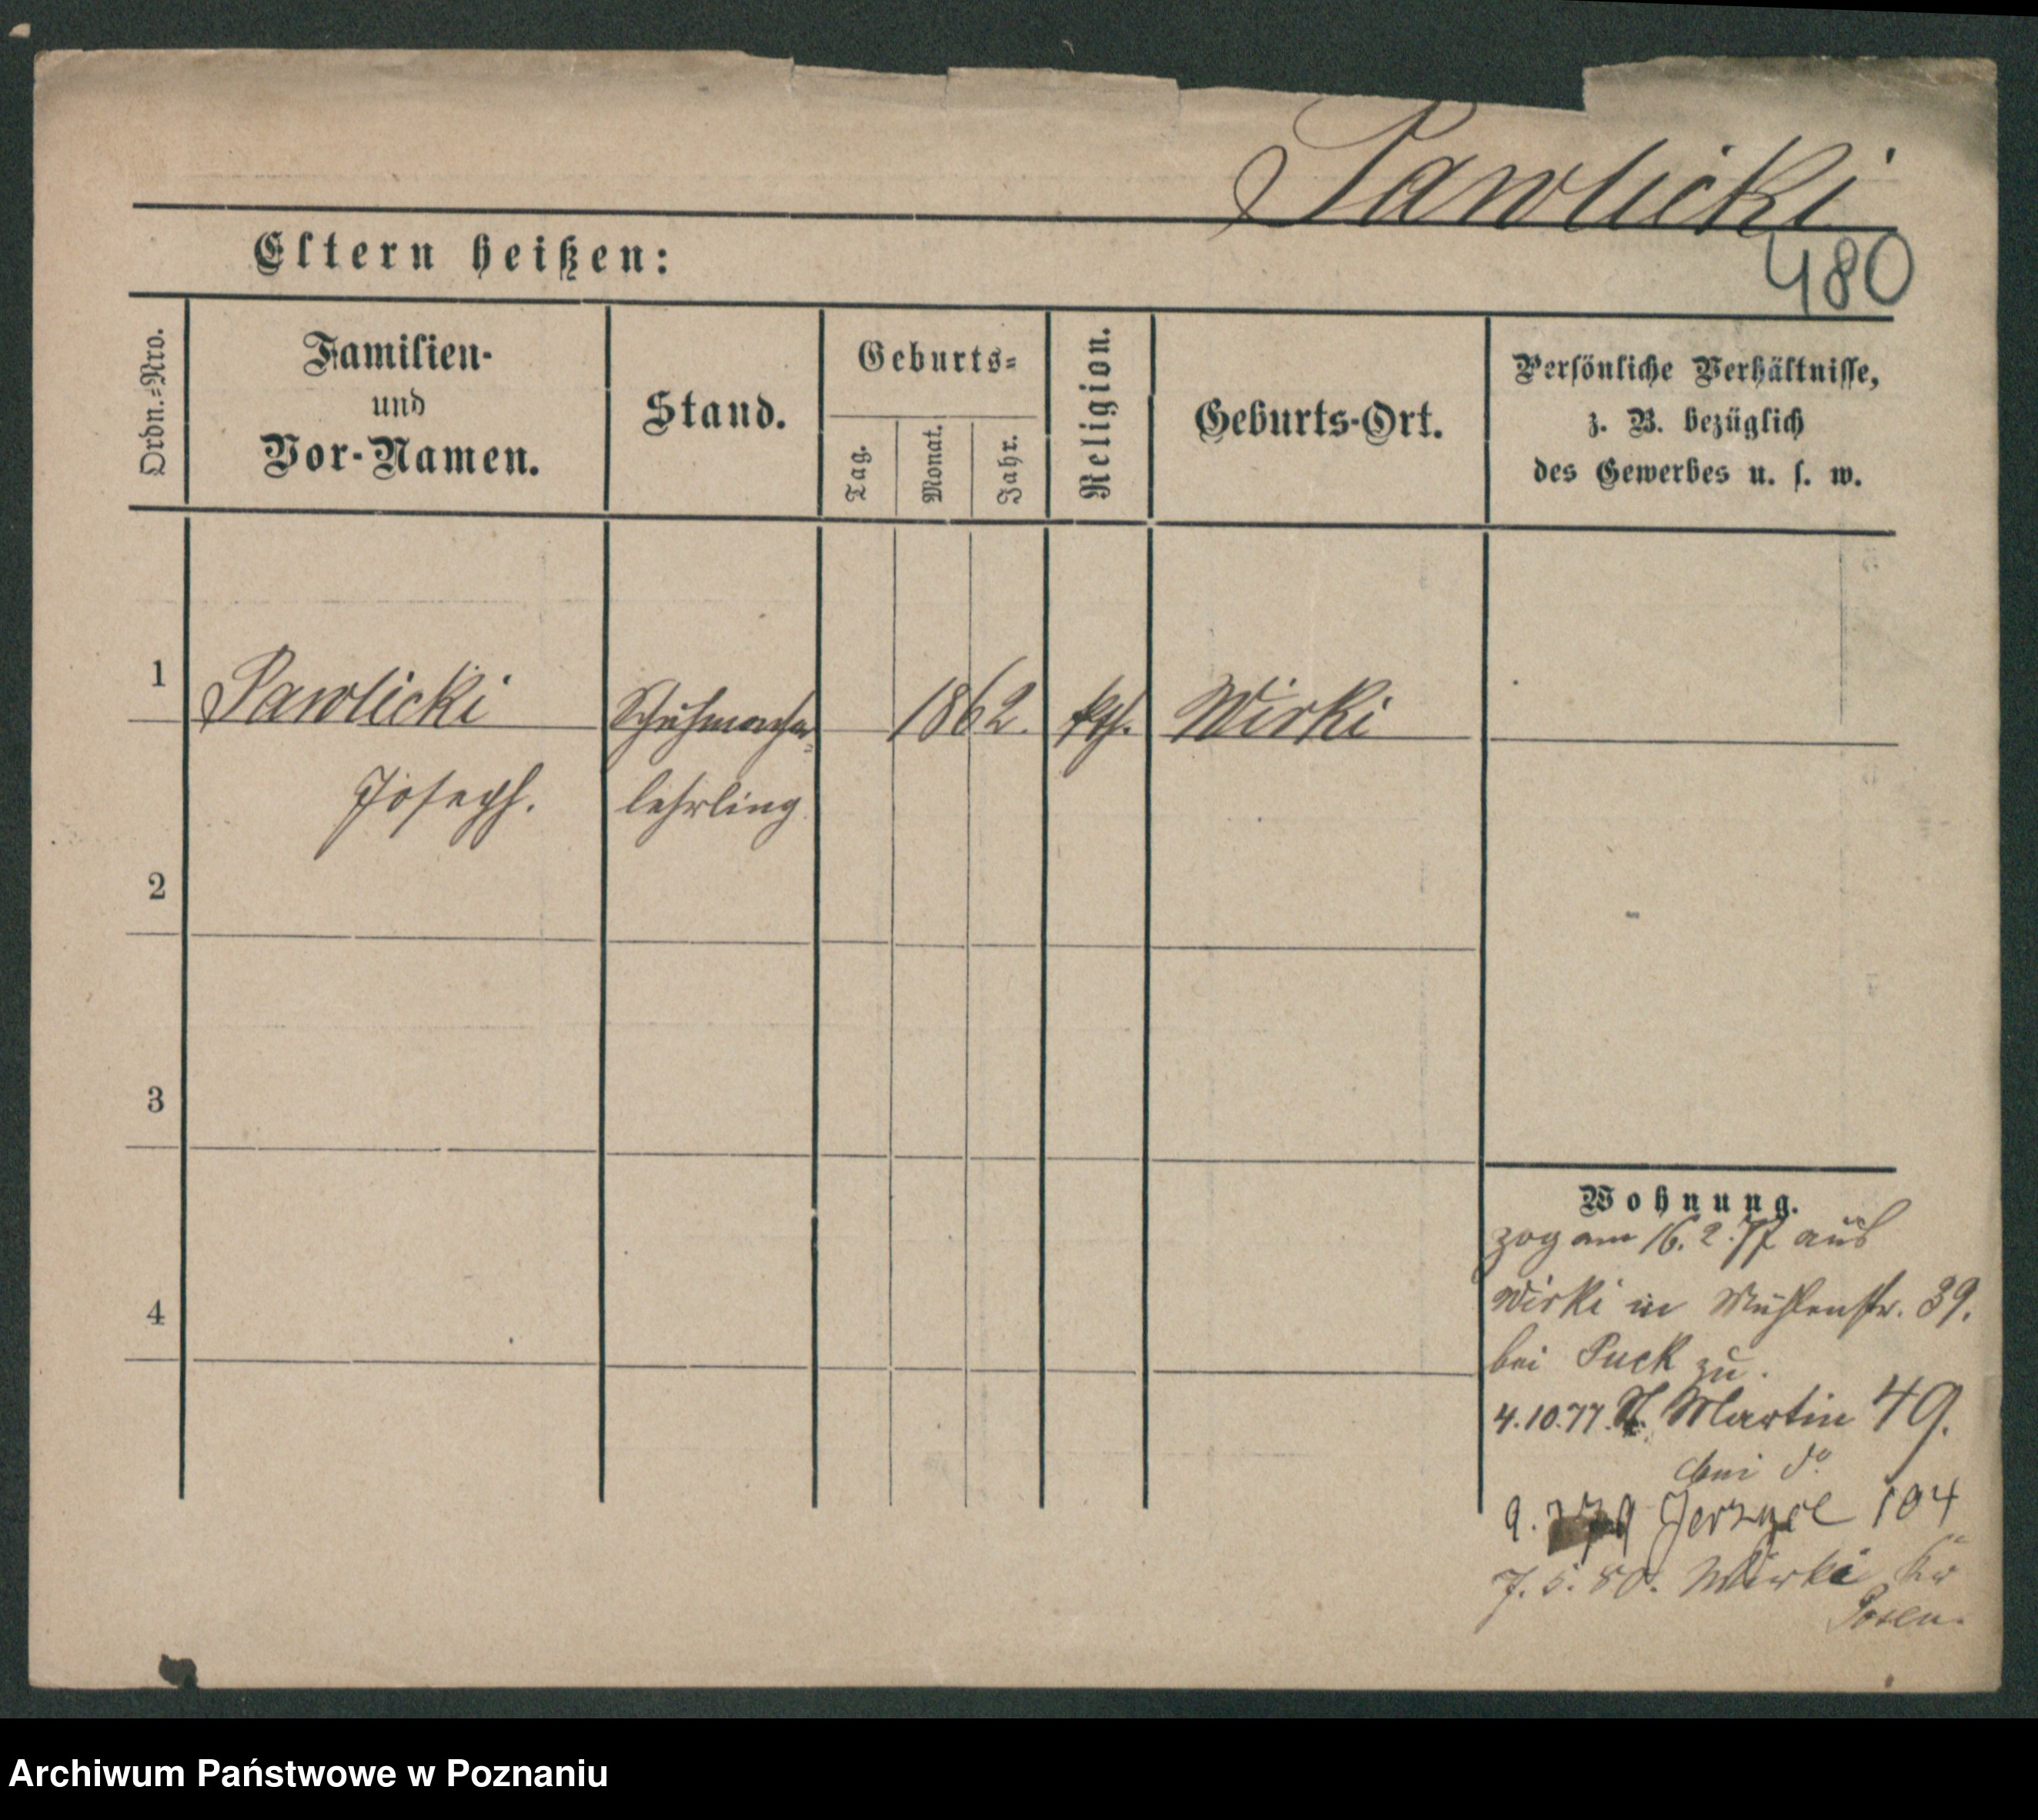 Pawlicki
480
Eltern heißen:
Ordn.-Nro.
Familien-
und
Vor-Namen.
Stand.
Geburts-
Tag.
Monat.
Jahr.
Religion.
Geburts-Ort.
Persönliche Verhältnisse,
z. B. bezüglich
des Gewerbes u. s. w.
1
Pawlicki
Schuhmacher-
1862.
kth.
Wirki
Joseph.
lehrling
2
3
4
Wohnung.
zog am 16.2.77 aus
Wirki in Mühlenstr. 39.
bei Puck zu.
4.10.77. St. Martin 49.
bei do
9. 79 Jerzyce 104
7.5.80. Wirki Kr
Posen.
Archiwum Państwowe w Poznaniu